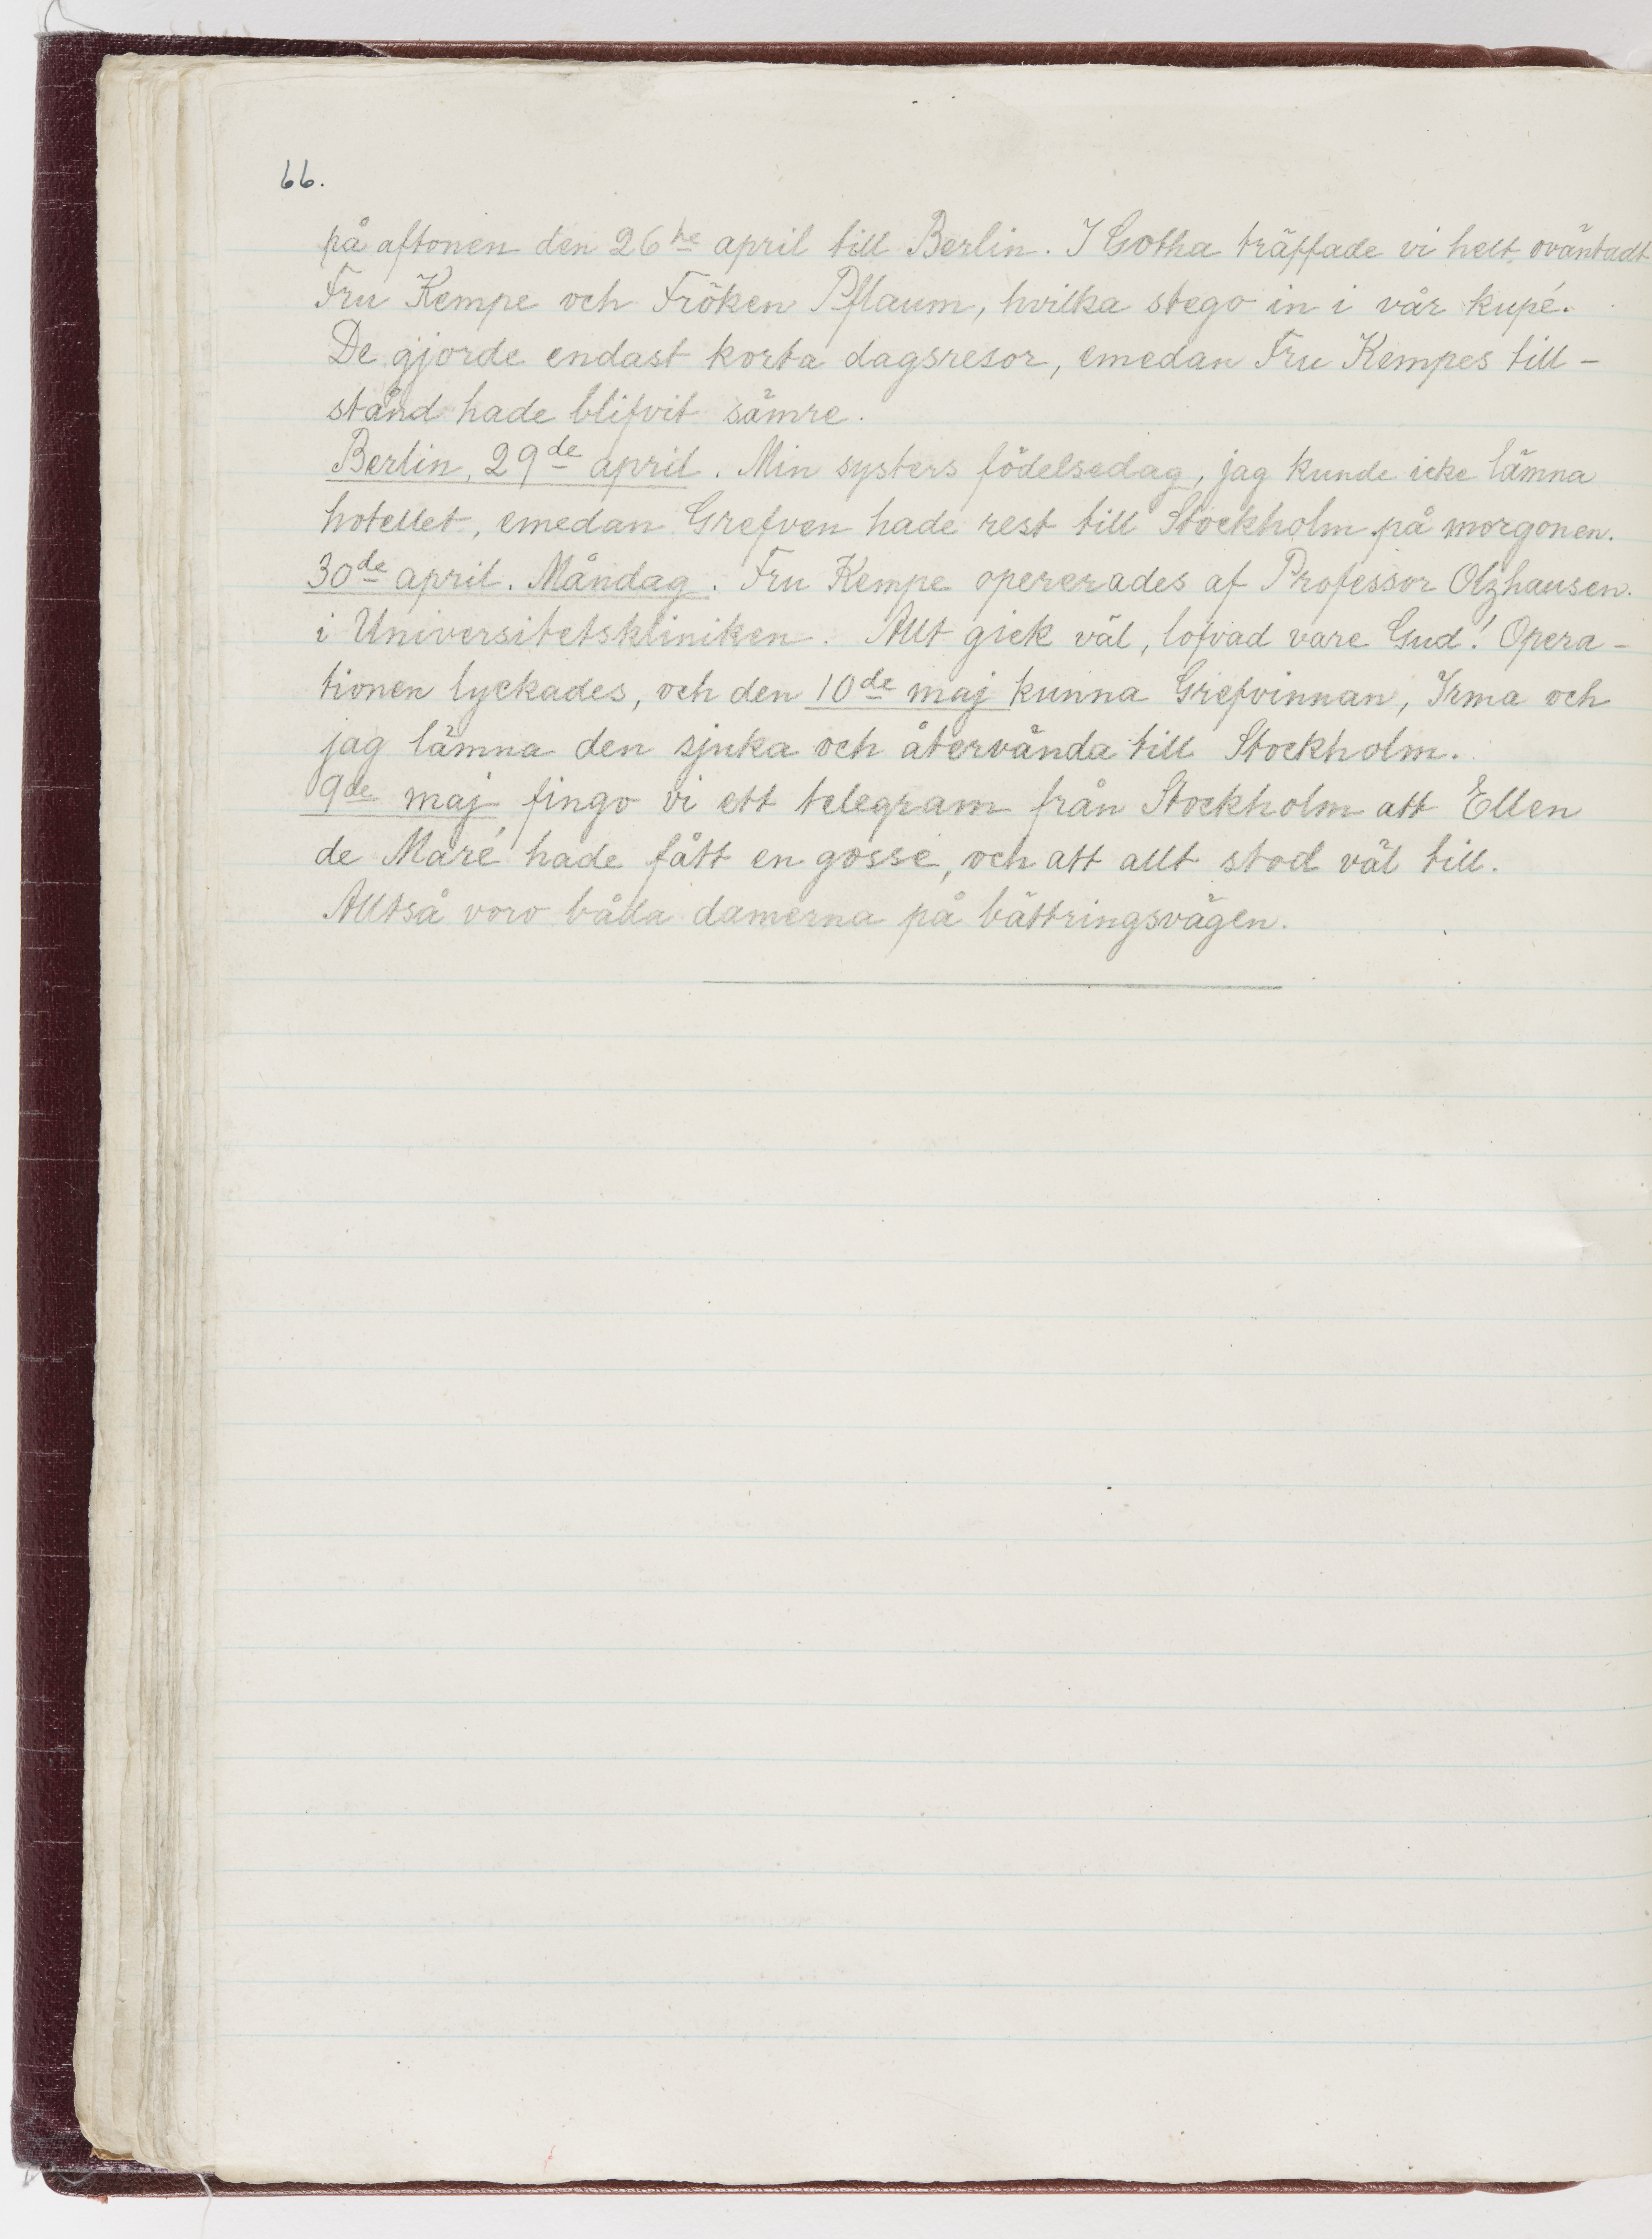 66.
på aftonen den 26te april till Berlin. I Gotha träffade vi helt oväntadt
Fru Kempe och Fröken Pflaum, hvilka stego in i vår kupé.
De gjorde endast korta dagsresor, emedan Fru Kempes till-
stånd hade blifvit sämre.
Berlin, 29de april. Min systers födelsedag, jag kunde icke lämna
hotellet, emedan Grefven hade rest till Stockholm på morgonen.
30de april. Måndag. Fru Kempe opererades af Professor Olzhausen.
i Universitetskliniken. Allt gick väl, lofvad vare Gud! Opera-
tionen lyckades, och den 10de maj kunna Grefvinnan, Irma och
jag lämna den sjuka och återvända till Stockholm.
9de maj fingo vi ett telegram från Stockholm att Ellen
de Maré hade fått en gosse, och att allt stod väl till.
Alltså voro båda damerna på bättringsvägen.